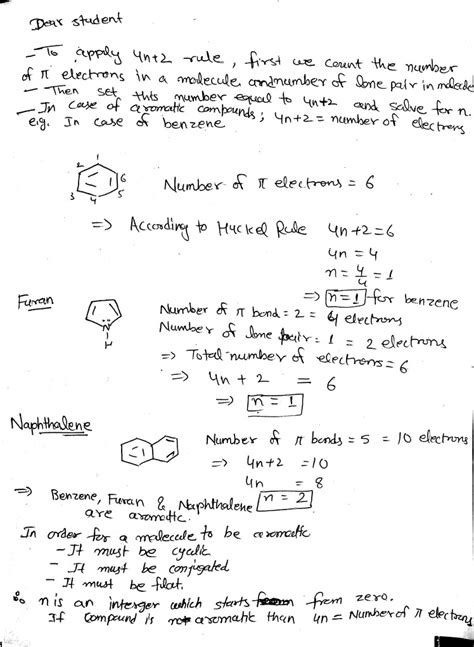 Dear student
- To apply 4n+2 rule, first we count the number
of π electrons in a molecule, and number of lone pair in molecule
- Then set this number equal to 4n+2 and solve for n.
- In case of aromatic compounds; 4n+2 = number of electrons
e.g. In case of benzene
1
2
6
3
5
4
Number of π electrons = 6
=> According to Huckel Rule 4n+2=6
4n = 4
n = 4/4 = 1
=> n=1 for benzene
Furan
N
H
Number of π bond = 2 = 4 electrons
Number of lone pair = 1 = 2 electrons
=> Total number of electrons = 6
=> 4n + 2 = 6
=> n = 1
Naphthalene
Number of π bonds = 5 = 10 electrons
=> 4n+2 = 10
4n = 8
n = 2
=> Benzene, Furan & Naphthalene
are aromatic.
In order for a molecule to be aromatic
- It must be cyclic
- It must be conjugated
- It must be flat.
n is an interger which starts from zero.
If compound is not aromatic than 4n = Number of π electrons